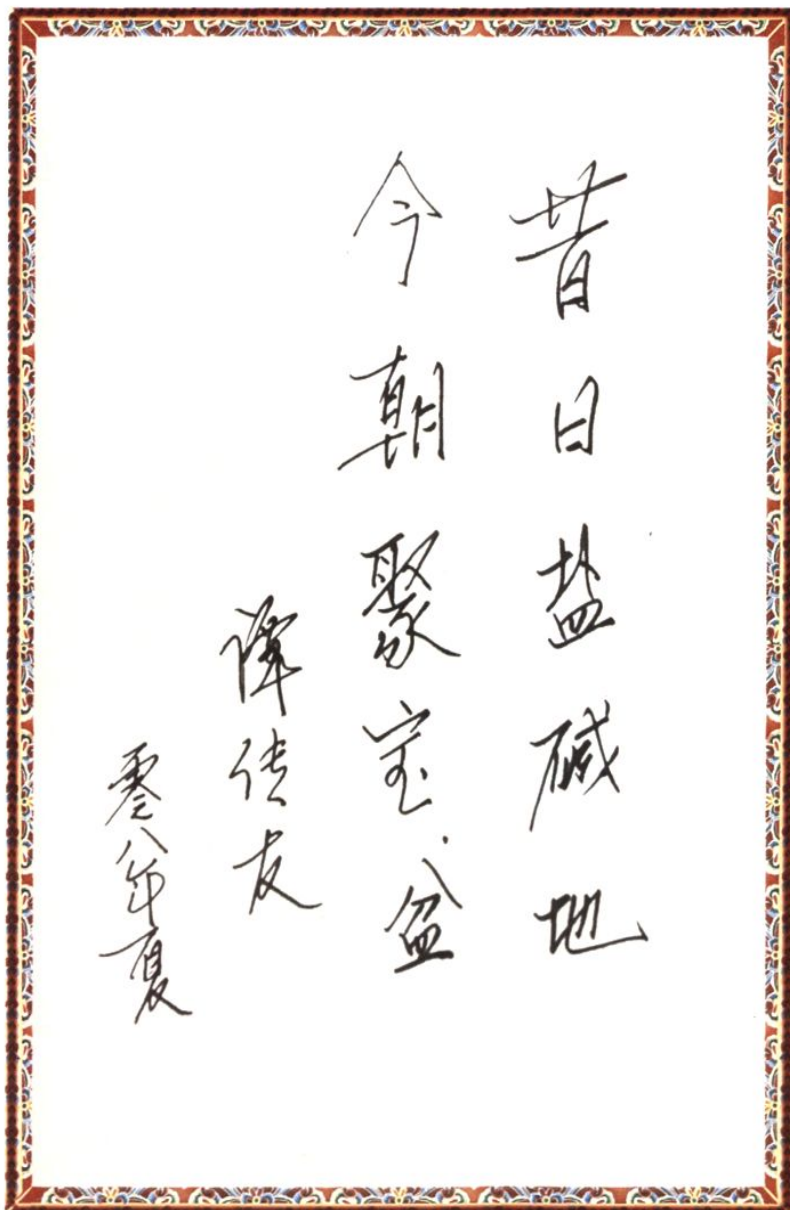 昔日盐碱地
今朝聚宝盆
谭传友
零八年夏